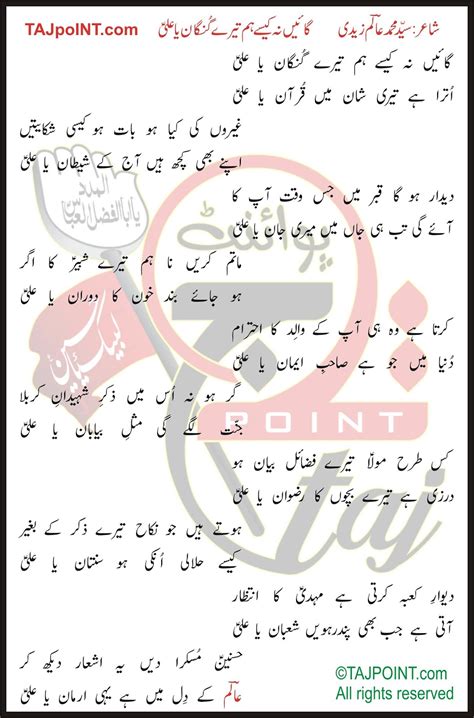 TAJpoiNT.com گائیں نہ کیسے ہم تیرے گُنگان یا علیؑ شاعر: سیّد محمد عالؔم زیدی
گائیں نہ کیسے ہم تیرے گُنگان یا علیؑ
اُترا ہے تیری شان میں قُرآن یا علیؑ
غیروں کی کیا ہو بات ہو کیسی شکایتیں
اپنے بھی کچھ ہیں آج کے شیطان یا علیؑ
المدد
یا ابالفضل العباسؑ
دیدار ہو گا قبر میں جس وقت آپ کا
آئے گی تب ہی جاں میں میری جان یا علیؑ
پوائنٹ
ماتم کریں نا ہم تیرے شبیرؑ کا اگر
ہو جائے بند خون کا دوران یا علیؑ
تاج
کرتا ہے وہ ہی آپ کے والِد کا احترام
دُنیا میں جو ہے صاحبِ ایمان یا علیؑ
لبیک یا حسینؑ
گر ہو نہ اُس میں ذکرِ شہیدانِ کربلا
جنّت لگے گی مثلِ بیابان یا علیؑ
POINT
کس طرح مولاؑ تیرے فضائل بیان ہو
درزی ہے تیرے بچّوں کا رضوان یا علیؑ
taj
ہوتے ہیں جو نکاح تیرے ذکر کے بغیر
کیسے حلالی اُنکی ہو سنتان یا علیؑ
دیوارِ کعبہ کرتی ہے مہدیؑ کا انتظار
آتی ہے جب بھی پندرہویں شعبان یا علیؑ
حسنینؑ مسکرا دیں یہ اشعار دیکھ کر
عالؔم کے دِل میں ہے یہی ارمان یا علیؑ
©TAJPOINT.com
All rights reserved